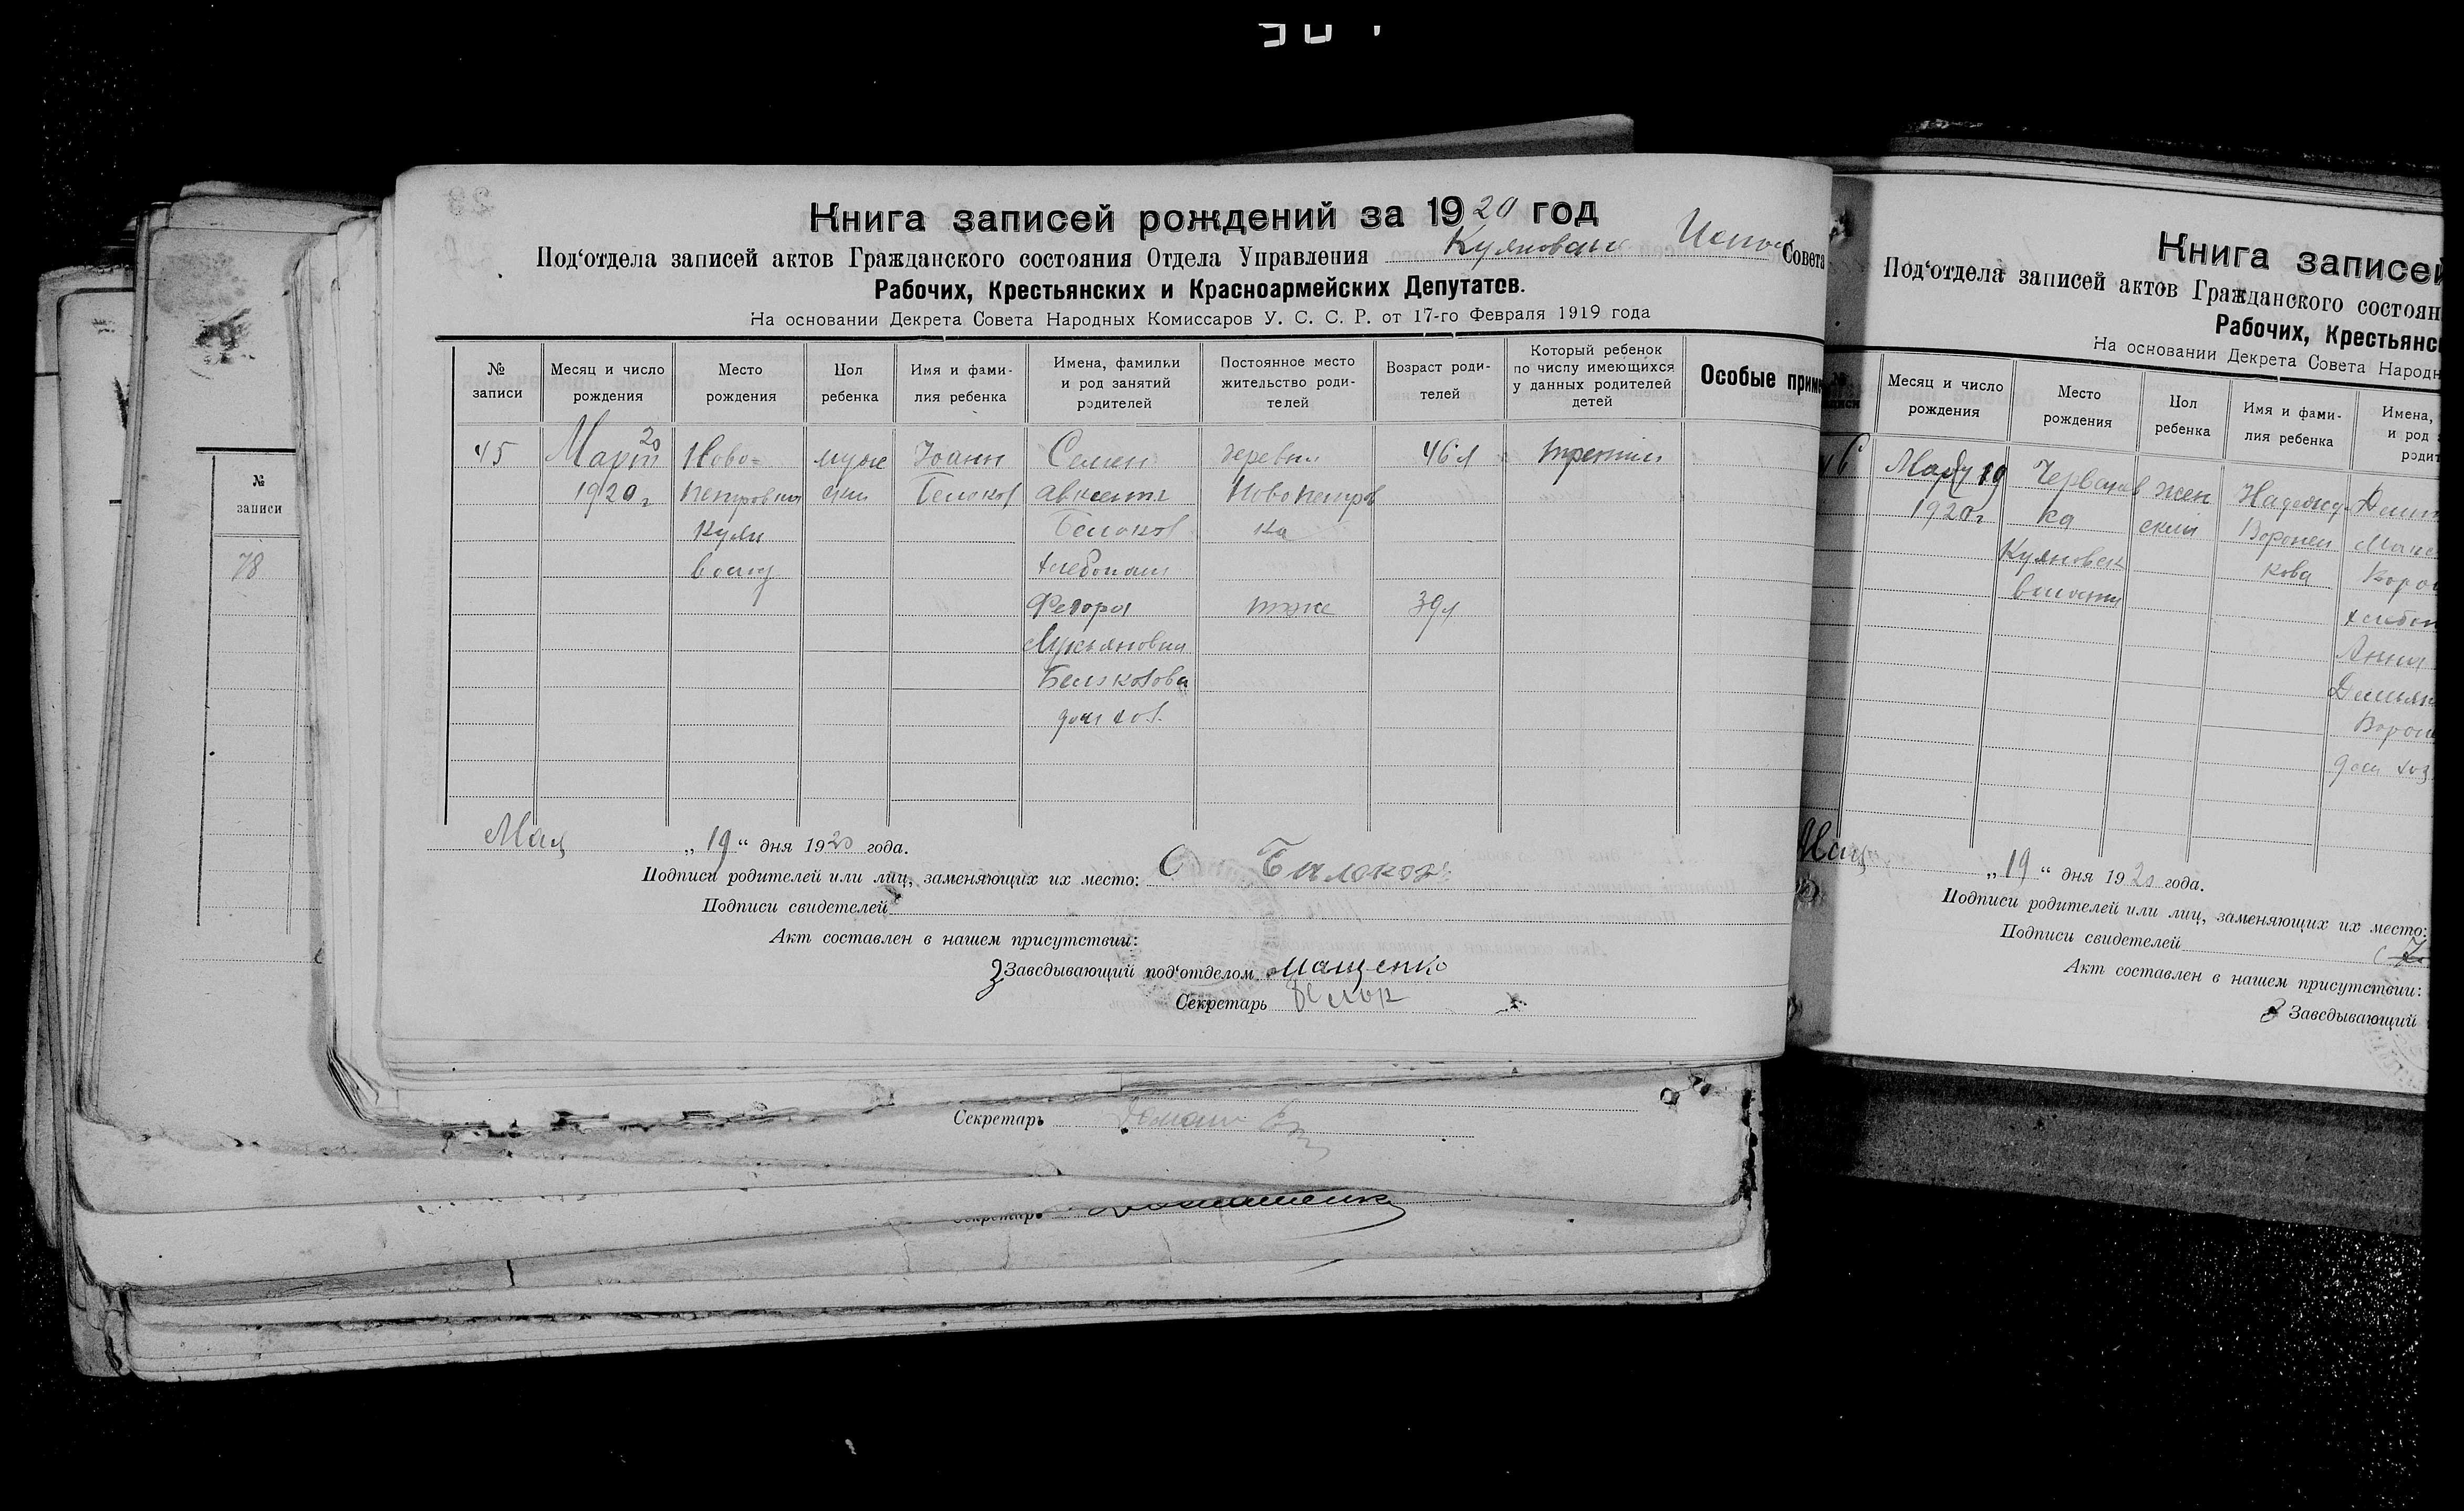 Книга записей рождений за 1920 год
Под‘отдела записей актов Гражданского состояния Отдела Управления Куяновский Испол Совета
Рабочих, Крестьянских и Красноармейских Депутатов.
На основании Декрета Совета Народных Комиссаров У. С. С. Р. от 17-го Февраля 1919 года
№ записи
Месяц и число рождения
Место рождения
Пол ребенка
Имя и фамилия ребенка
Имена, фамилии и род занятий родителей
Постоянное место жительство родителей
Возраст родителей
Который ребенок по числу имеющихся у данных родителей детей
Особые приме
45
Март 20
1920 г
Ново-
петровка
Куян
волод
муж
ский
Иоанн
Белокоз
Семен
Авксентия
Белокоз
хлебопаш
Феодора
Лукьяновна
Белякозова
дом хоз.
деревня
Новопетров
ка
тоже
46 л
39 л
третий
Мая „19“ дня 1920 года.
Подписи родителей или лиц, заменяющих их место: С Билокоз
Подписи свидетелей
Акт составлен в нашем присутствии:
З Заведывающий под‘отделом Мащенко
Секретарь
Секретарь
Секретарь
№
записи
78
Книга записей
Под‘отдела записей актов Гражданского состоян
Рабочих, Крестьянс
На основании Декрета Совета Народн
Месяц и число рождения
Место рождения
Пол ребенка
Имя и фамилия ребенка
Имена,
и род
родит
46
19
1920 г
Червона
ка
Куяновск
волости
жен
ский
Надежда
Воронен
кова
Анна
Демьян
Ворон
дом хоз
Мая „19“ дня 1920 года.
Подписи родителей или лиц, заменяющих их место:
Подписи свидетелей
Акт составлен в нашем присутствии:
З Заведывающий